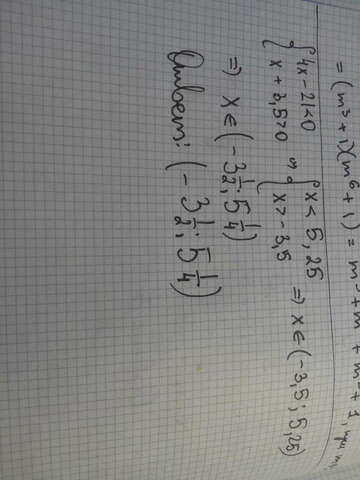 = (m³ + 1)(m⁶ + 1) = m⁹ + m + m + 1, при m
{ 4x - 21 < 0
{ x + 3,5 > 0
⇔ { x < 5,25
{ x > -3,5
⇒ x ∈ (-3,5 ; 5,25)
⇒ x ∈ (-3 1/2 ; 5 1/4)
Ответ: (-3 1/2 ; 5 1/4)